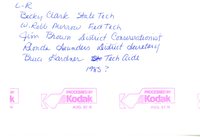 L-R
Becky Clark State Tech
W. Robb Murrow Fed Tech
Jim Brown District Conservationist
Rhonda Saunders District Secretary
Bruce Gardner Tech Aide
1985?
PROCESSED BY
Kodak
PROCESSED BY
Kodak